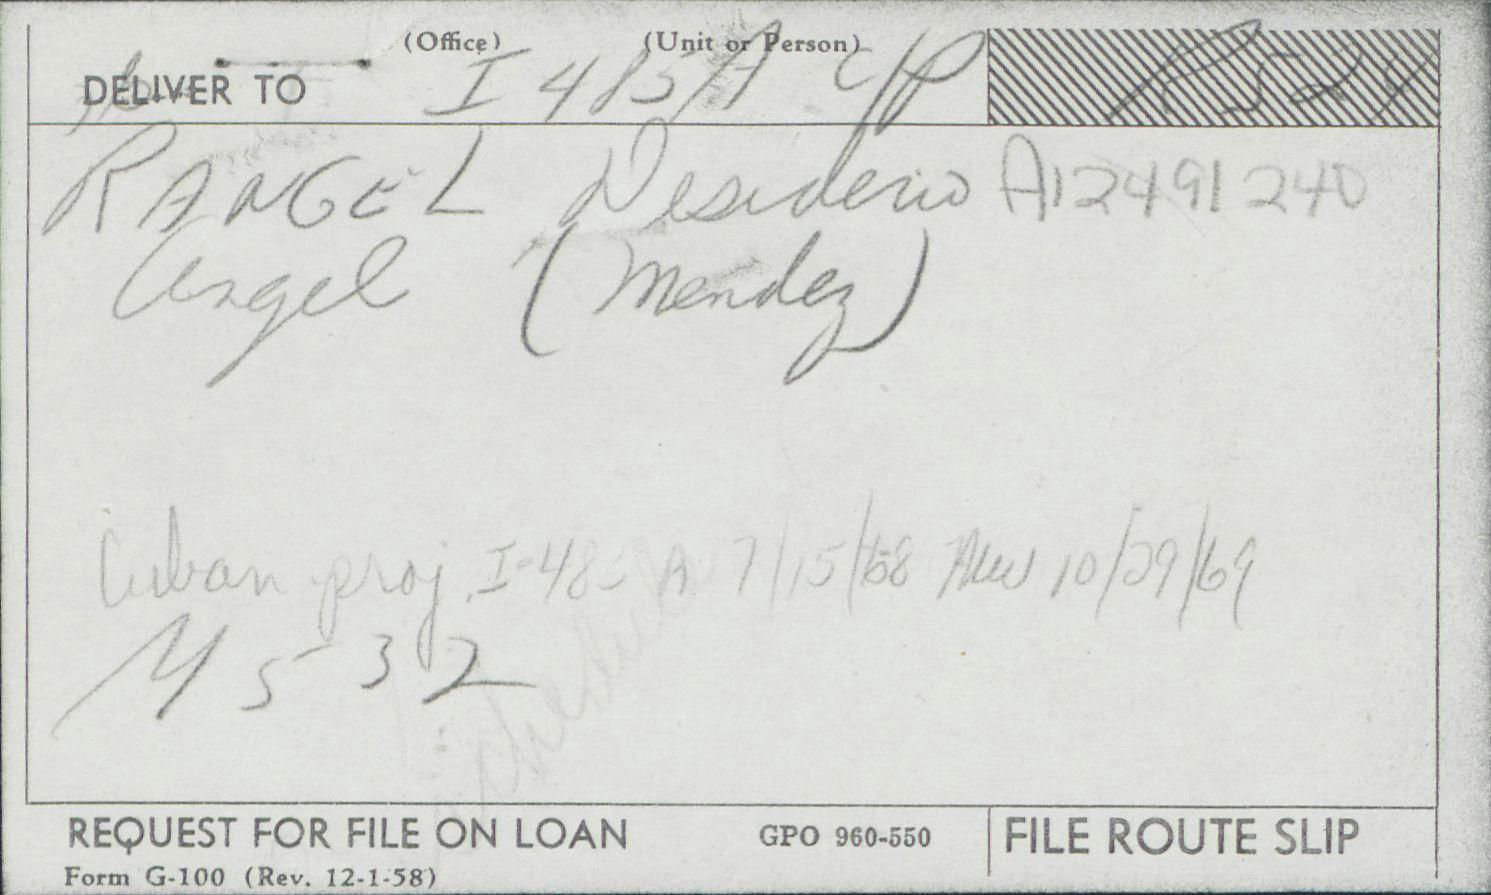 (Office) (Unit or Person)
DELIVER TO I 485A C/P R524
RANGEL Desiderio A12491240
Angel (Mendez)
Cuban proj. I-485 A 7/15/68 10/29/69
M 532
REQUEST FOR FILE ON LOAN GPO 960-550 FILE ROUTE SLIP
Form G-100 (Rev. 12-1-58)